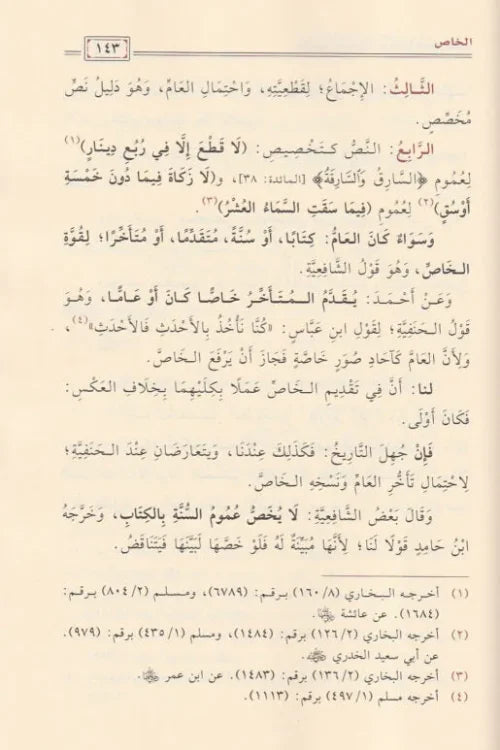 الخاص
١٤٣
الثَّالِثُ: الإِجْمَاعُ؛ لِقَطْعِيَّتِهِ، وَاحْتِمَالِ العَامِّ، وَهُوَ دَلِيلُ نَصٍّ
مُخَصِّصٍ.
الرَّابِعُ: النَّصُّ كَتَخْصِيصِ: (لَا قَطْعَ إِلَّا فِي رُبُعِ دِينَارٍ)(١)
لِعُمُومِ ﴿السَّارِقُ وَالسَّارِقَةُ﴾ [المائدة: ٣٨]، و(لَا زَكَاةَ فِيمَا دُونَ خَمْسَةِ
أَوْسُقٍ)(٢) لِعُمُومِ (فِيمَا سَقَتِ السَّمَاءُ العُشْرُ)(٣).
وَسَوَاءٌ كَانَ العَامُّ: كِتَابًا، أَوْ سُنَّةً، مُتَقَدِّمًا، أَوْ مُتَأَخِّرًا؛ لِقُوَّةِ
الخَاصِّ، وَهُوَ قَوْلُ الشَّافِعِيَّةِ.
وَعَنْ أَحْمَدَ: يُقَدَّمُ المُتَأَخِّرُ خَاصًّا كَانَ أَوْ عَامًّا، وَهُوَ
قَوْلُ الحَنَفِيَّةِ؛ لِقَوْلِ ابنِ عَبَّاسٍ: «كُنَّا نَأْخُذُ بِالأَحْدَثِ فَالأَحْدَثِ»(٤)،
وَلِأَنَّ العَامَّ كَآحَادِ صُوَرٍ خَاصَّةٍ فَجَازَ أَنْ يَرْفَعَ الخَاصَّ.
لنا: أَنَّ فِي تَقْدِيمِ الخَاصِّ عَمَلًا بِكِلَيْهِمَا بِخِلَافِ العَكْسِ:
فَكَانَ أَوْلَى.
فَإِنْ جُهِلَ التَّارِيخُ: فَكَذَلِكَ عِنْدَنَا، وَيَتَعَارَضَانِ عِنْدَ الحَنَفِيَّةِ؛
لِاحْتِمَالِ تَأَخُّرِ العَامِّ وَنَسْخِهِ الخَاصَّ.
وَقَالَ بَعْضُ الشَّافِعِيَّةِ: لَا يُخَصُّ عُمُومُ السُّنَّةِ بِالكِتَابِ، وَخَرَّجَهُ
ابْنُ حَامِدٍ قَوْلًا لَنَا؛ لِأَنَّهَا مُبَيِّنَةٌ لَهُ فَلَوْ خَصَّهَا لَبَيَّنَهَا فَيَتَنَاقَضُ.
(١) أخرجه البخاري (٨/ ١٦٠) برقم: (٦٧٨٩)، ومسلم (٢/ ٨٠٤) برقم:
(١٦٨٤). عن عائشة رضي الله عنها.
(٢) أخرجه البخاري (٢/ ١٢٦) برقم: (١٤٨٤)، ومسلم (١/ ٤٣٥) برقم: (٩٧٩).
عن أبي سعيد الخدري رضي الله عنه.
(٣) أخرجه البخاري (٢/ ١٣٦) برقم: (١٤٨٣). عن ابن عمر رضي الله عنهما.
(٤) أخرجه مسلم (١/ ٤٩٧) برقم: (١١١٣).